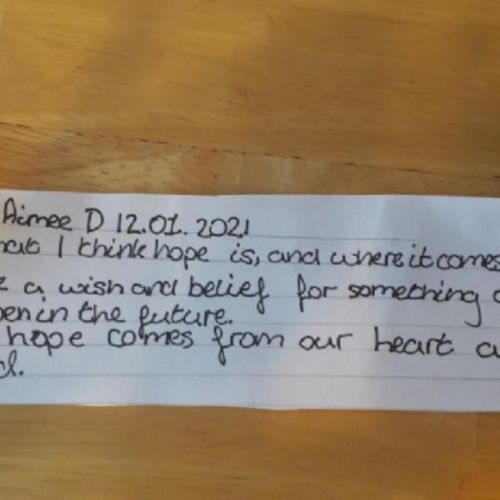 Aimee D 12.01.2021
I think hope is, and where it comes
a wish and belief for something
in the future.
hope comes from our heart